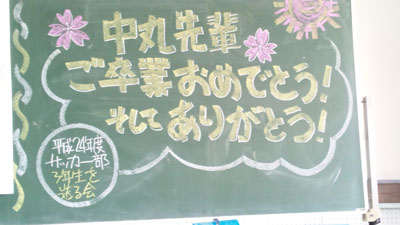 中丸先輩
ご卒業おめでとう!
そしてありがとう!
平成24年度
サッカー部
3年生を
送る会